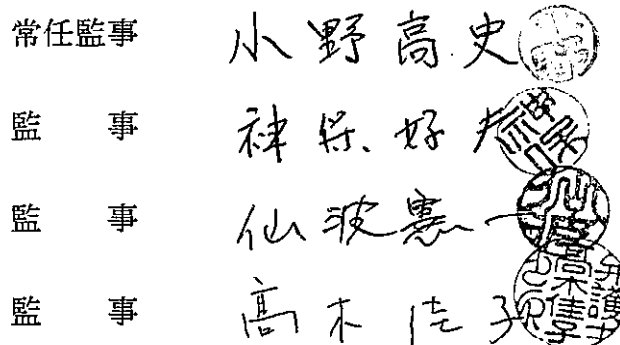 常任監事 小野高史
監事 神保好夫
監事 仙波憲一
監事 高木佳子